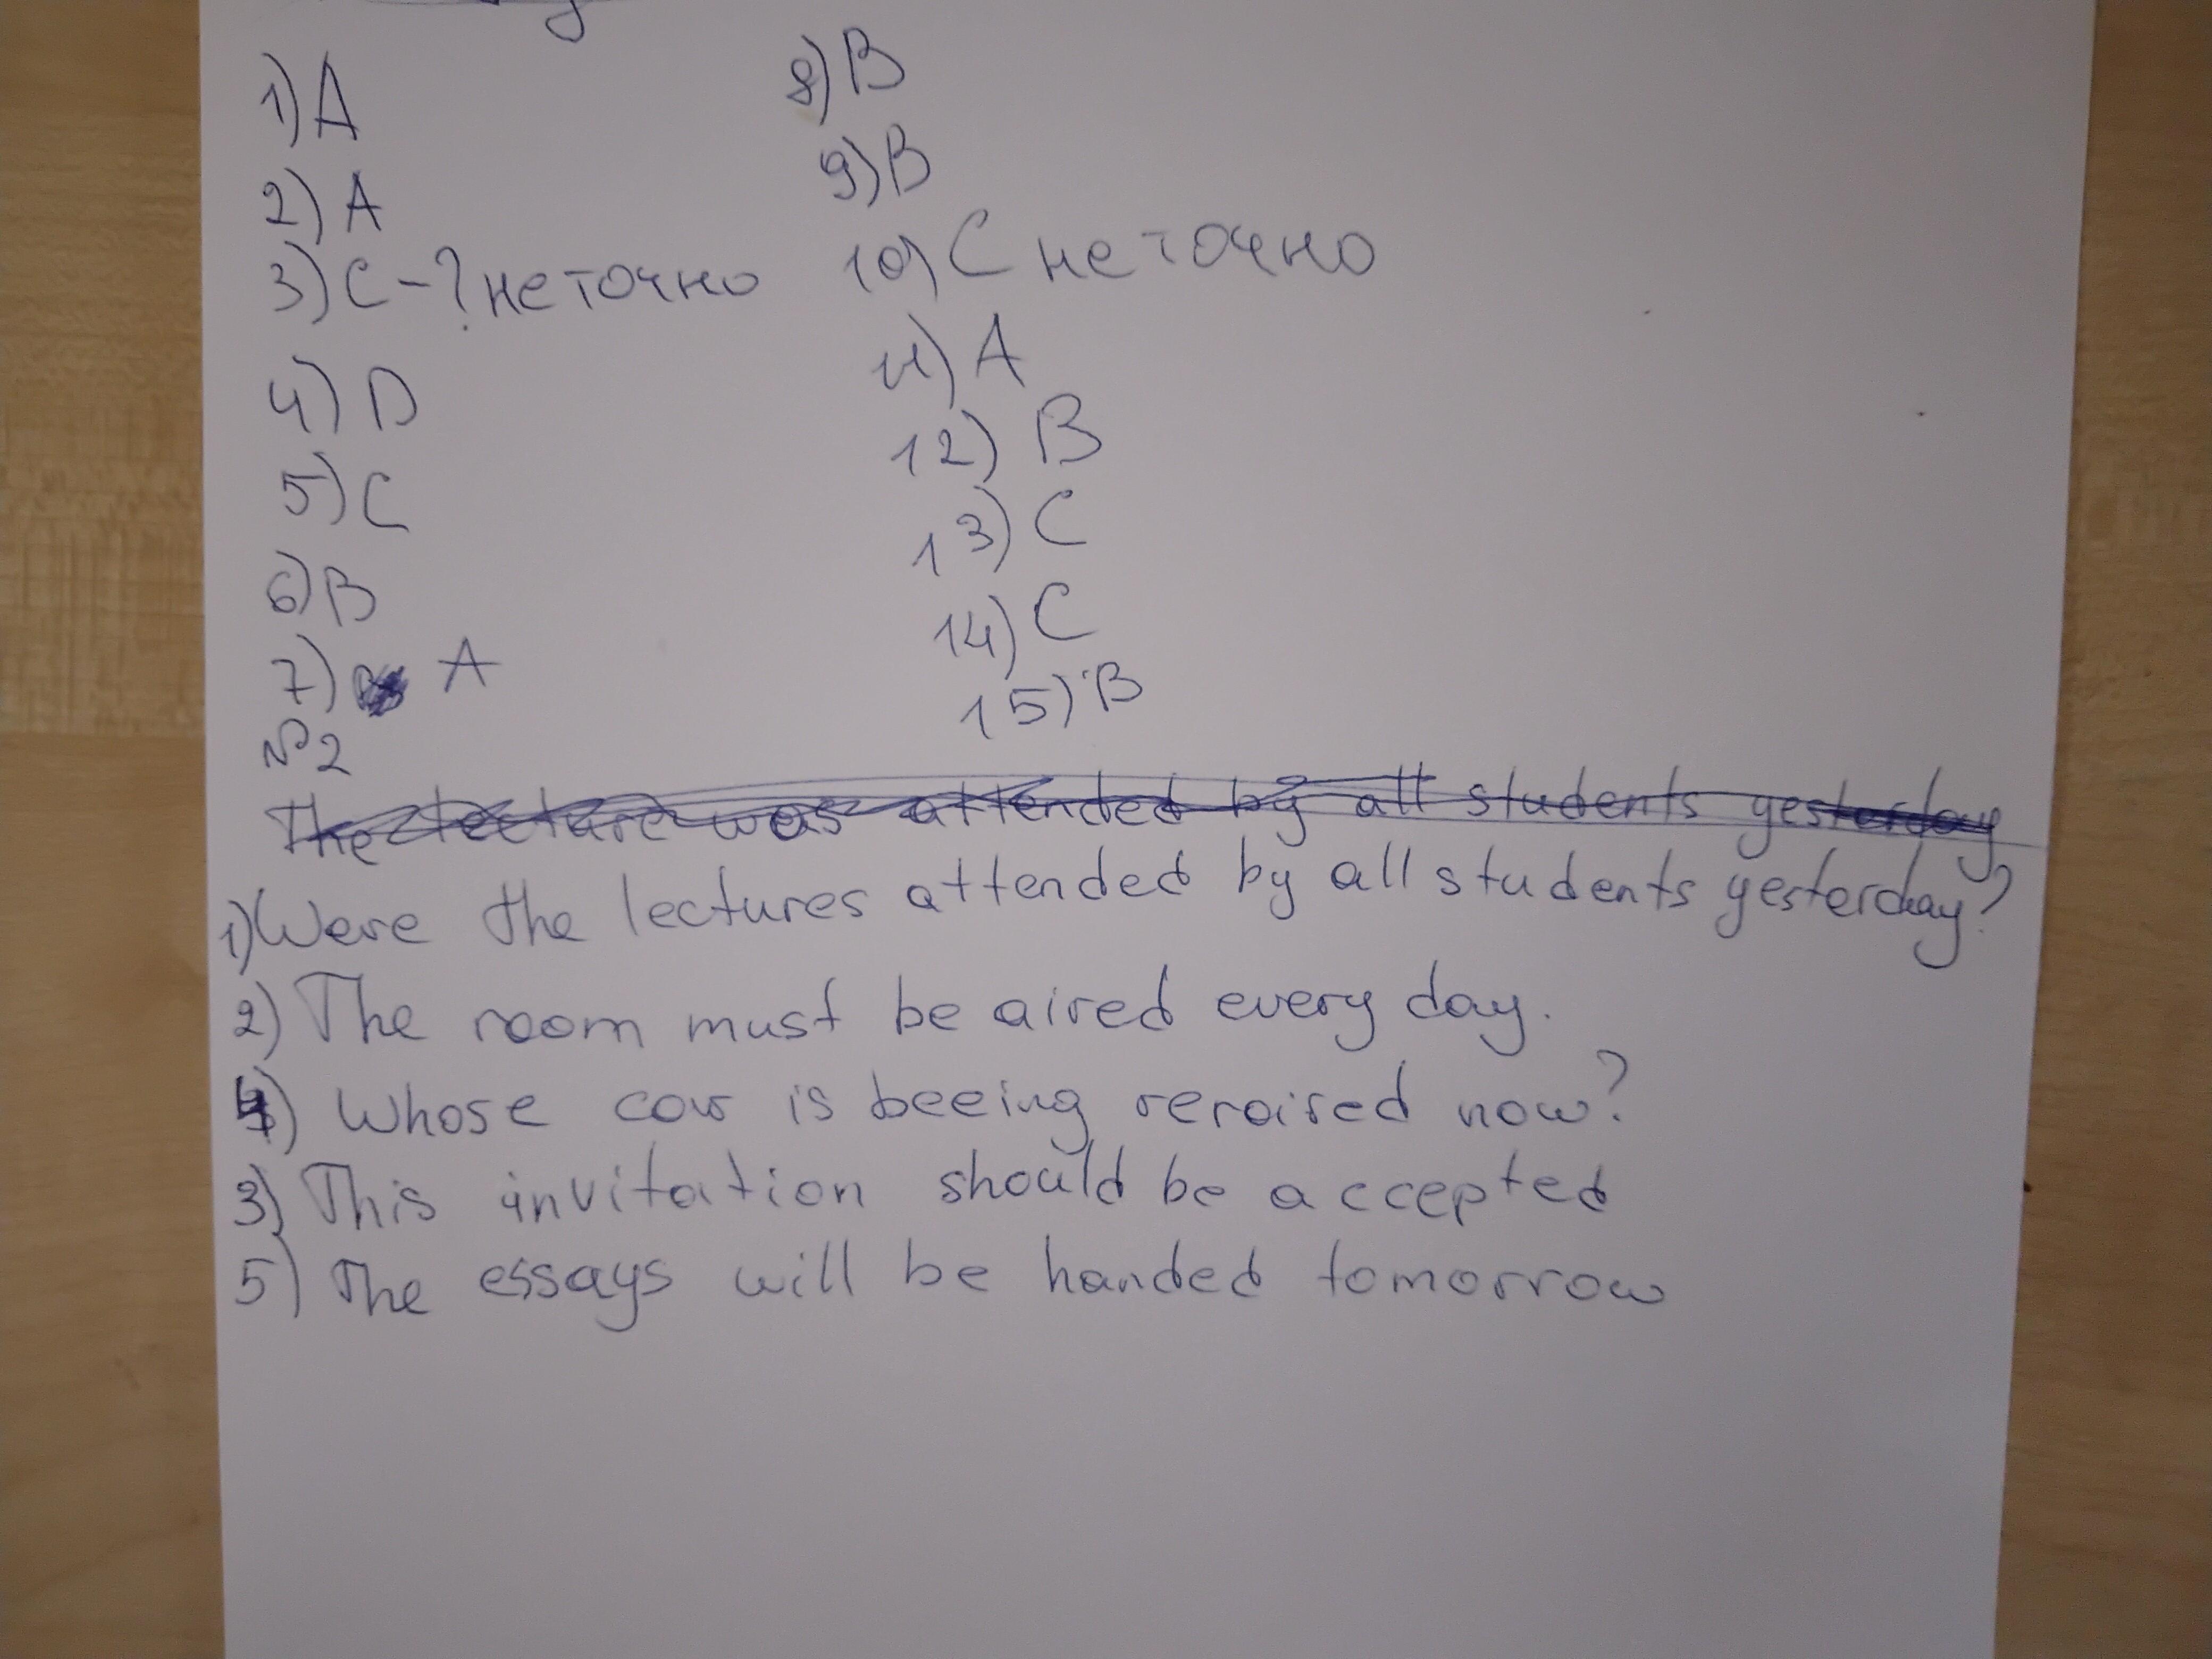 1) A
2) A
3) C - ? не точно
4) D
5) C
6) B
7) A
8) B
9) B
10) C не точно
11) A
12) B
13) C
14) C
15) B
№2
The lecture was attended by all students yesterday
1) Were the lectures attended by all students yesterday?
2) The room must be aired every day.
4) Whose cow is beeing reraised now?
3) This invitation should be accepted
5) The essays will be handed tomorrow